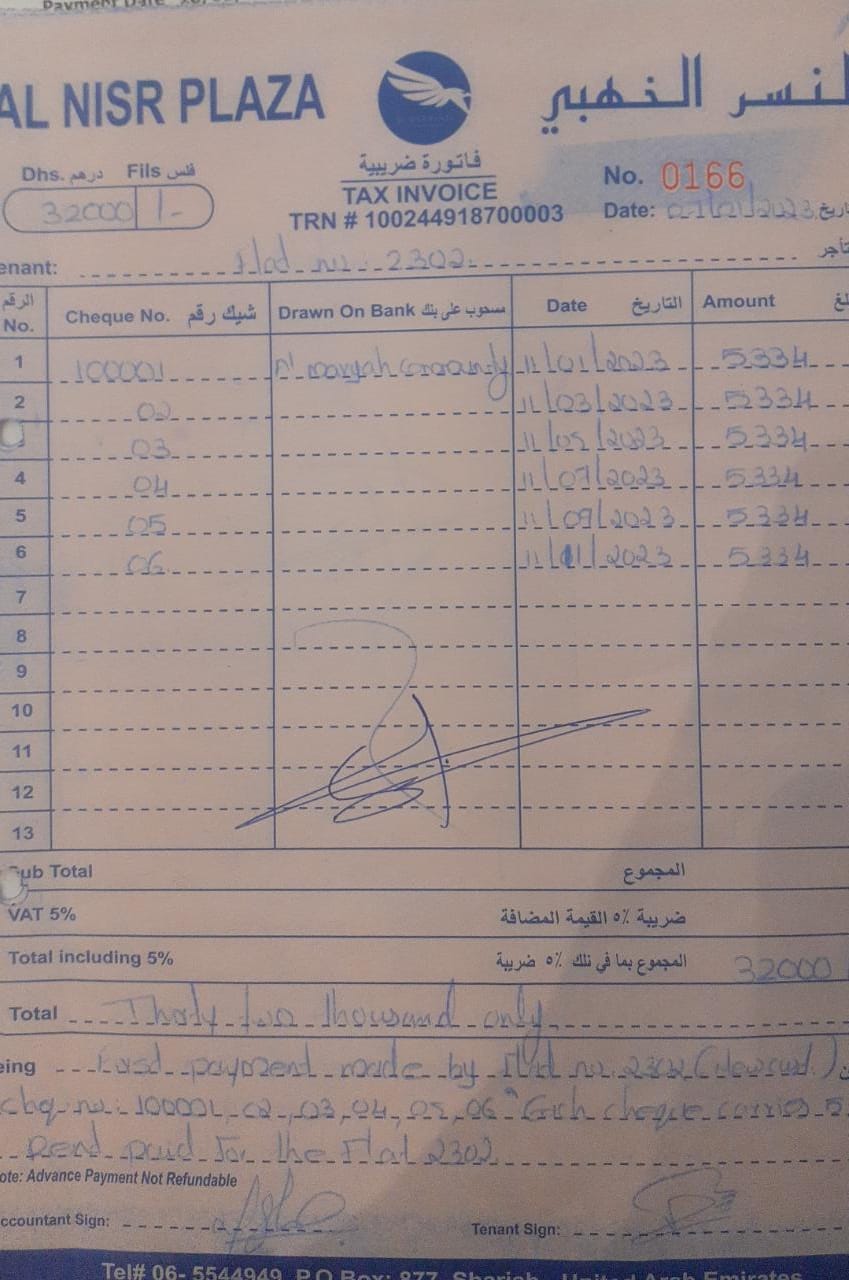 Payment Date
AL NISR PLAZA
لنسر الذهبي
Dhs. درهم Fils فلس
32000 /-
فاتورة ضريبية
TAX INVOICE
TRN # 100244918700003
No. 0166
Date: 2023 تاريخ
enant: Flat no: 2302 تأجر
الرقم No. Cheque No. شيك رقم Drawn On Bank مسحوب على بنك Date التاريخ Amount لغ
1 100001 Al maryah 11/01/2023 5334
2 02 11/03/2023 5334
03 11/05/2023 5334
4 04 11/07/2023 5334
5 05 11/09/2023 5334
6 06 11/11/2023 5334
7
8
9
10
11
12
13
ub Total المجموع
VAT 5% ضريبة ٥٪ القيمة المضافة
Total including 5% المجموع بما في ذلك ٥٪ ضريبة 32000
Total Thirty two thousand only
eing payment made by no. 2302
chq no: 100001, 02, 03, 04, 05, 06 Each cheque carries 5
Rent paid for the Flat 2302
ote: Advance Payment Not Refundable
ccountant Sign: Tenant Sign:
Tel# 06- 5544949 P.O Box: 877 Sharjah United Arab Emirates